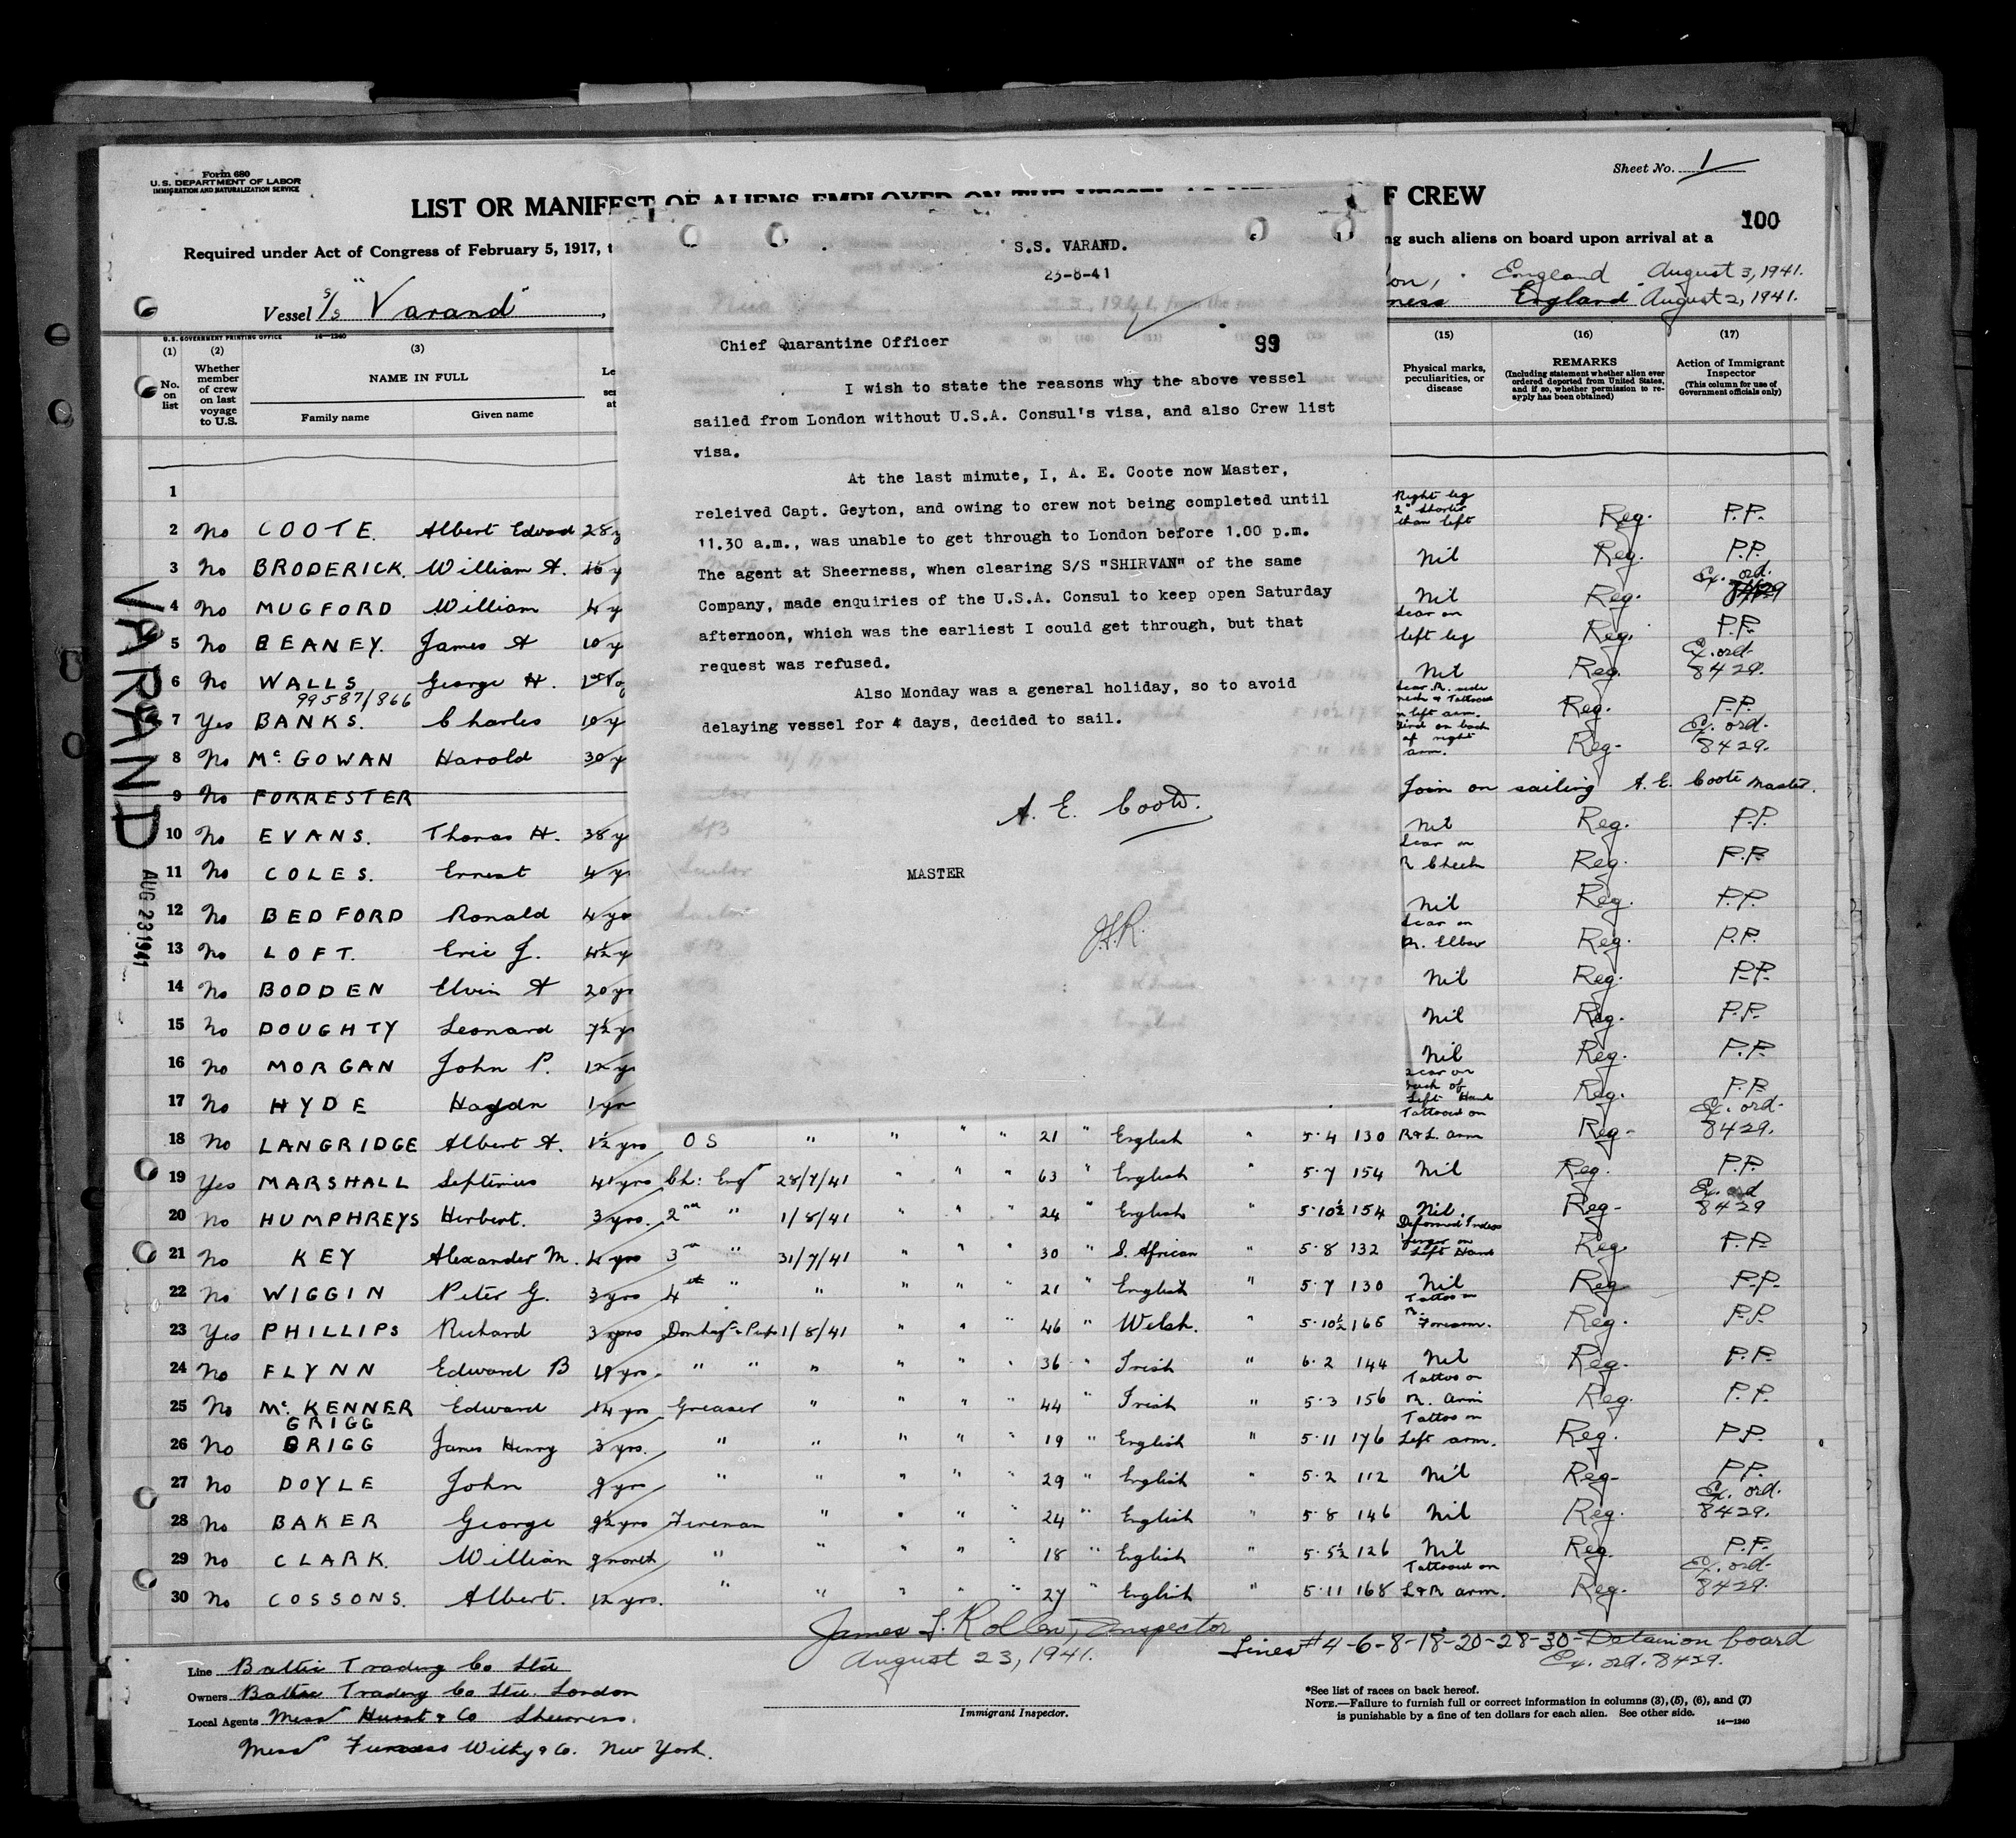 Form 680
U.S. DEPARTMENT OF LABOR
IMMIGRATION AND NATURALIZATION SERVICE
Sheet No. 1
LIST OR MANIFEST OF ALIENS EMPLOYED ON THE VESSEL AS F CREW
100
Required under Act of Congress of February 5, 1917, t ng such aliens on board upon arrival at a
Vessel S/S "Varand"
on, England August 3, 1941.
ness England August 2, 1941.
U.S. GOVERNMENT PRINTING OFFICE 14—1240
(1) (2) (3) (15) (16) (17)
No. on list
Whether member of crew on last voyage to U.S.
NAME IN FULL
Family name Given name
Physical marks, peculiarities, or disease
REMARKS
(Including statement whether alien ever ordered deported from United States, and if so, whether permission to reapply has been obtained)
Action of Immigrant Inspector
(This column for use of Government officials only)
S.S. VARAND.
23-8-41
Chief Quarantine Officer
99
I wish to state the reasons why the above vessel
sailed from London without U.S.A. Consul's visa, and also Crew list
visa.
At the last minute, I, A. E. Coote now Master,
releived Capt. Geyton, and owing to crew not being completed until
11.30 a.m., was unable to get through to London before 1.00 p.m.
The agent at Sheerness, when clearing S/S "SHIRVAN" of the same
Company, made enquiries of the U.S.A. Consul to keep open Saturday
afternoon, which was the earliest I could get through, but that
request was refused.
Also Monday was a general holiday, so to avoid
delaying vessel for 4 days, decided to sail.
A. E. Coote.
MASTER
J.L.R.
VARAND
AUG 23 1941
1
2 No COOTE. Albert Edward 28 y Right leg 2" shorter than left Reg. P.P.
3 No BRODERICK. William A. 16 y Nil Reg. P.P.
4 No MUGFORD William 4 y Nil Reg. Ex. ord. 8429
5 No BEANEY. James A 10 y Scar on left leg Reg. P.P.
6 No WALLS George H. Nil Reg. Ex. ord. 8429.
99587/866
7 Yes BANKS. Charles 10 y Scar R. side neck & Tattooed on left arm. Reg. P.P.
8 No McGOWAN Harold 30 y Bird on back of right arm. Reg. Ex. ord. 8429.
9 No FORRESTER Join on sailing A. E. Coote Master.
10 No EVANS. Thomas H. 38 y Nil Reg. P.P.
11 No COLES. Ernest 4 yr Scar on R Cheek Reg. P.P.
12 No BEDFORD Ronald 4 yrs Nil Reg. P.P.
13 No LOFT. Eric J. 4½ y Scar on R. Elbow Reg. P.P.
14 No BODDEN Elvin A 20 yr Nil Reg. P.P.
15 No DOUGHTY Leonard 7½ y Nil Reg. P.P.
16 No MORGAN John P. 12 yr Nil Reg. P.P.
17 No HYDE Haydn 1 yr Scar on back of Left Hand Reg. P.P.
18 No LANGRIDGE Albert A. 1½ yrs OS " " " " 21 " English " 5.4 130 Tattooed on R & L. arm Reg. Ex. ord. 8429.
19 Yes MARSHALL Septimus 41 yrs Ch: Eng 28/7/41 " " " 63 " English " 5.7 154 Nil Reg. P.P.
20 No HUMPHREYS Herbert. 3 yrs. 2nd " 1/8/41 " " " 24 " English " 5.10½ 154 Nil. Reg. Ex. ord 8429
21 No KEY Alexander M. 4 yrs 3rd " 31/7/41 " " " 30 " S. African " 5.8 132 Deformed Index finger on Left Hand Reg. P.P.
22 No WIGGIN Peter G. 3 yrs 4th " " " " " 21 " English " 5.7 130 Nil Reg P.P.
23 Yes PHILLIPS Richard 3 yrs 1/8/41 " " " 46 " Welsh. " 5.10½ 165 Tattoo on R. Forearm. Reg. P.P.
24 No FLYNN Edward B 18 yrs. " " " " " " 36 " Irish " 6.2 144 Nil Reg. P.P.
25 No McKENNER Edward 14 yrs Greaser " " " " 44 " Irish " 5.3 156 Tattoo on R. Arm Reg. P.P.
GRIGG
26 No BRIGG James Henry 3 yrs. " " " " " 19 " English " 5.11 176 Tattoo on Left arm. Reg. P.P.
27 No DOYLE John 9 yrs " " " " " 29 " English " 5.2 112 Nil Reg. P.P.
28 No BAKER George 9½ yrs Fireman " " " " 24 " English " 5.8 146 Nil Reg. Ex. ord. 8429.
29 No CLARK. William 9 month " " " " " 18 " English " 5.5½ 126 Nil Reg. P.P.
30 No COSSONS. Albert. 12 yrs. " " " " " 27 " English " 5.11 168 Tattooed on L & R arm. Reg. Ex. ord. 8429.
James L. Rollen, Inspector
August 23, 1941.
Lines #4-6-8-18-20-28-30-Detain on board
Ex. ord. 8429.
Line Baltic Trading Co Ltd
Owners Baltic Trading Co Ltd. London
Local Agents Messrs Hurst & Co Sheerness.
Messrs Furness Withy & Co. New York.
Immigrant Inspector.
*See list of races on back hereof.
NOTE.—Failure to furnish full or correct information in columns (3), (5), (6), and (7)
is punishable by a fine of ten dollars for each alien. See other side.
14—1240